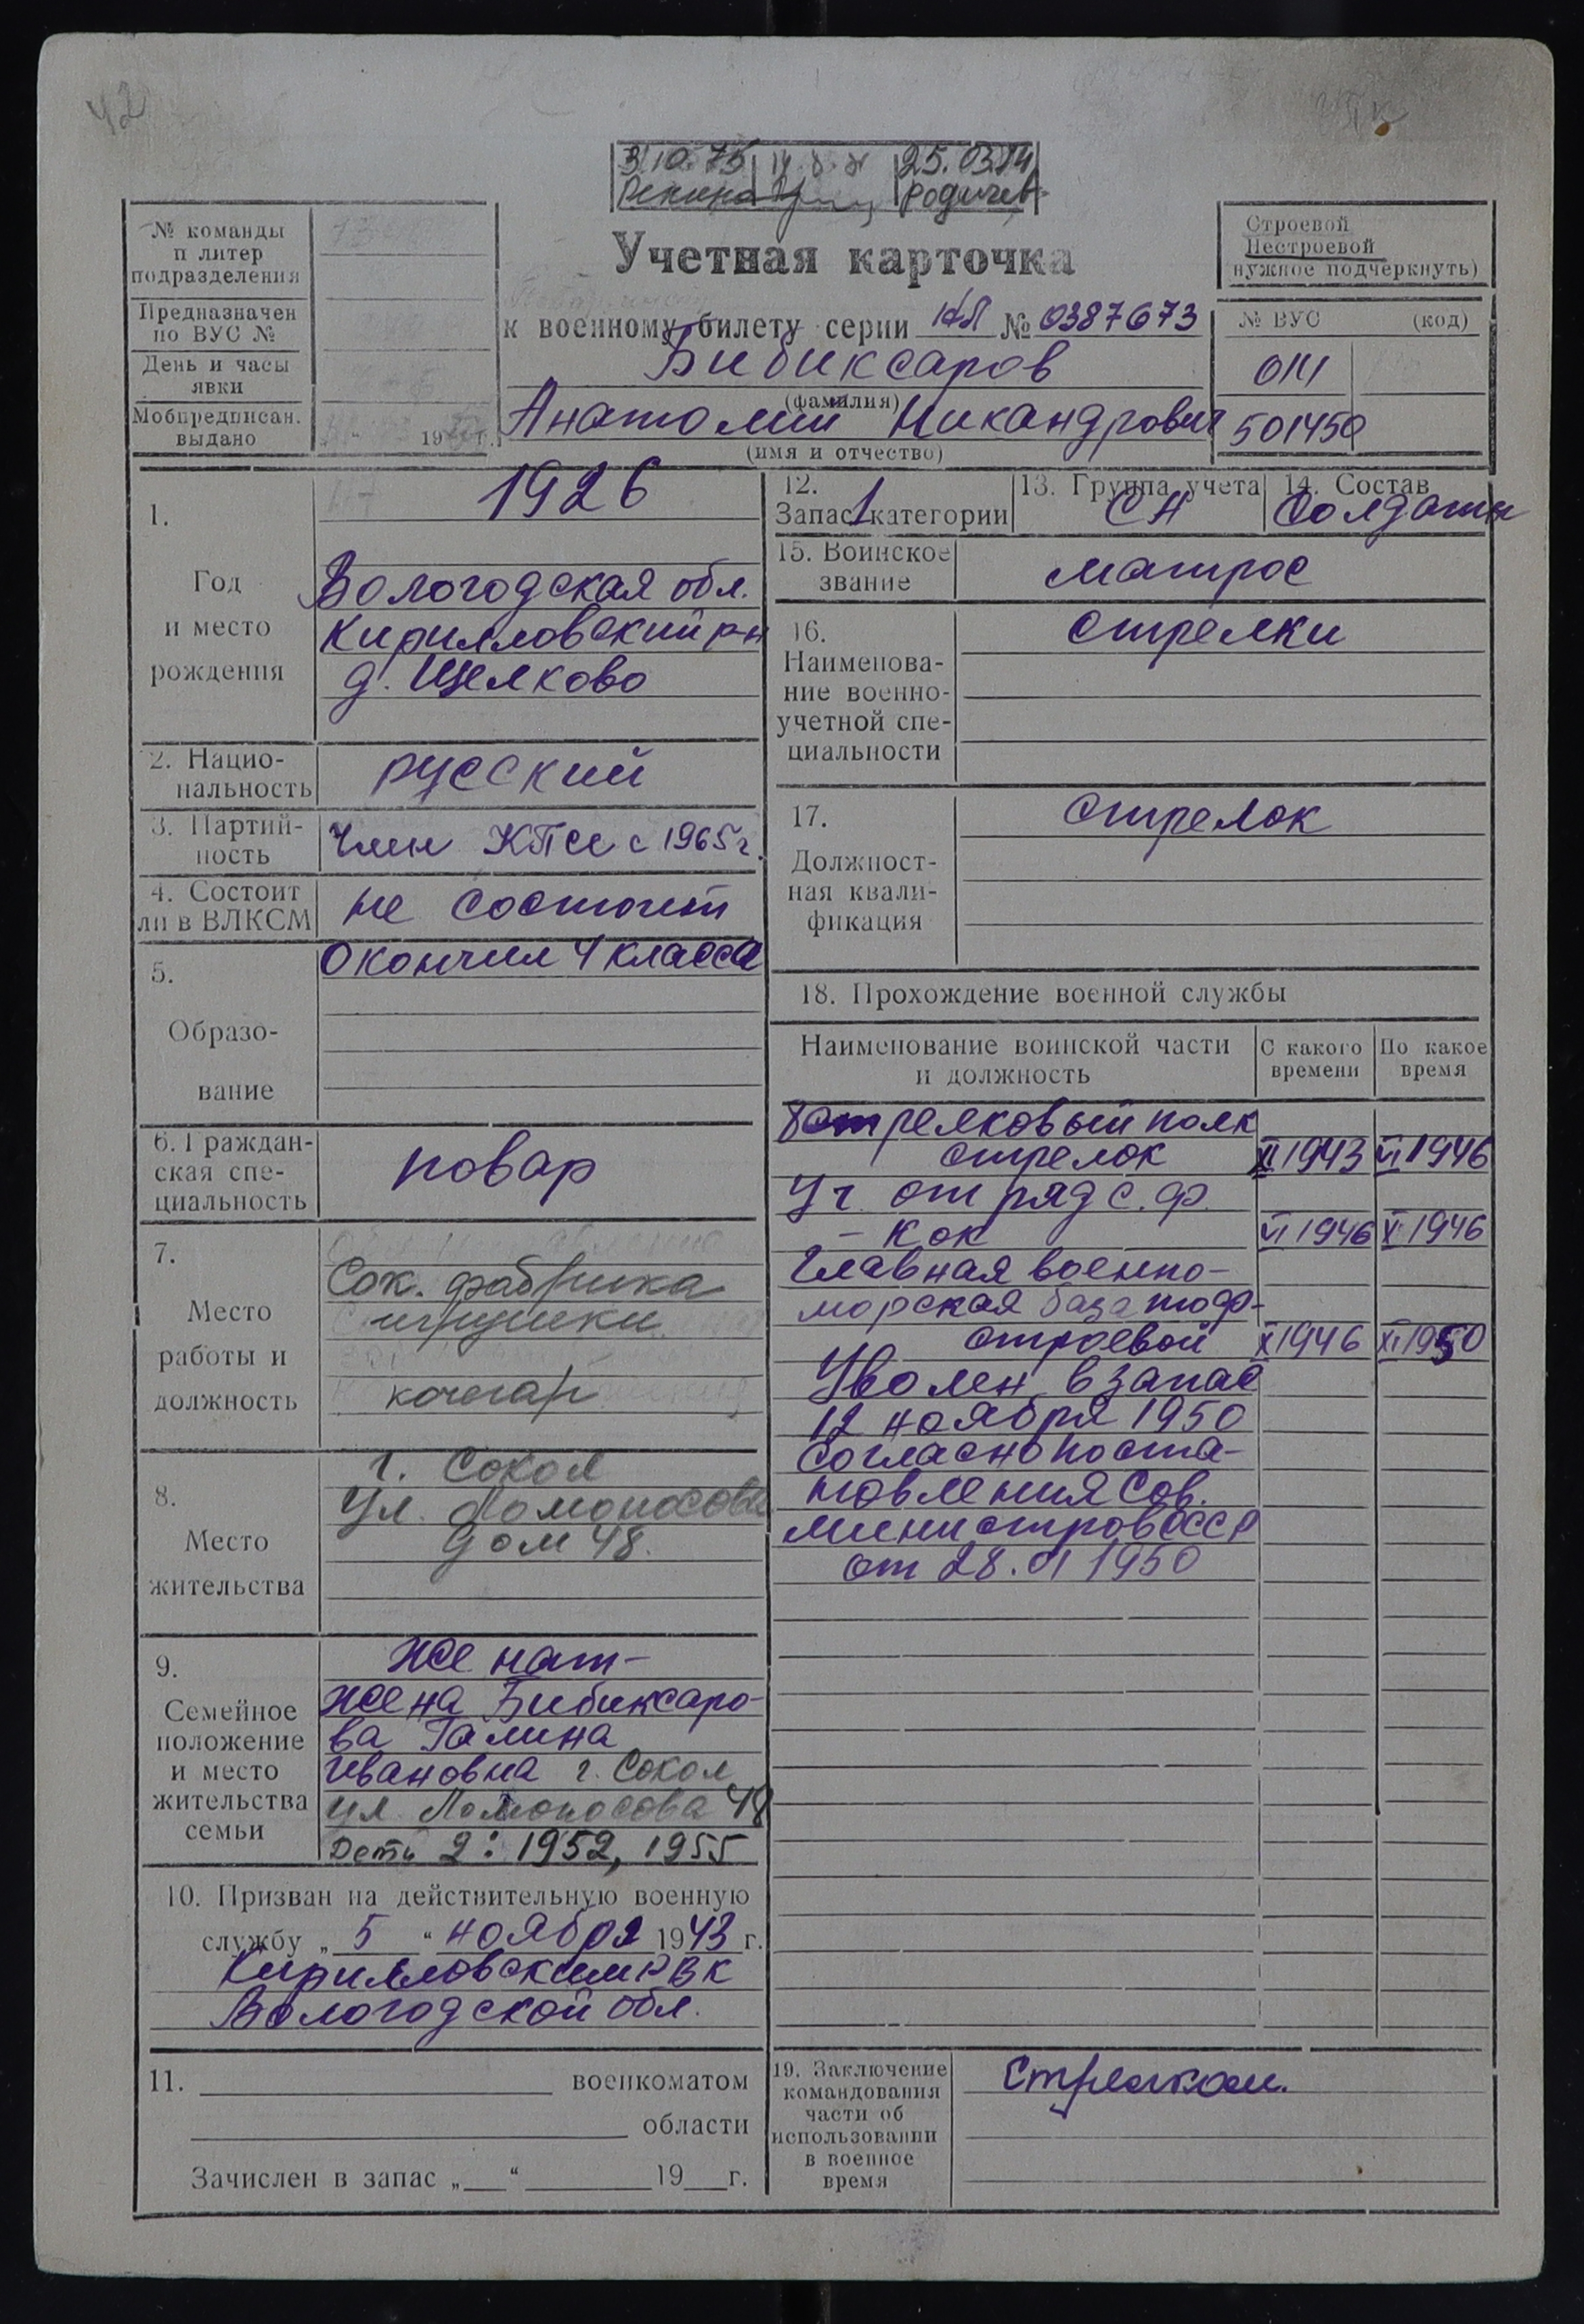 42
31.10.75
25.03.84
Родичев
№ команды
п литер
подразделения
Предназначен
по ВУС №
День и часы
явки
Мобпредписан.
выдано
19 г.
Учетная карточка
к военному билету серии НЛ № 0387673
Бибиксаров
(фамилия)
Анатолий Никандрович
(имя и отчество)
Строевой
Нестроевой
нужное подчеркнуть)
№ ВУС (код)
014
501450
1.
Год
и место
рождения
1926
Вологодская обл.
Кирилловский р-н
д. Щелково
2. Нацио-
нальность
русский
3. Партий-
ность
Член КПСС с 1965 г.
4. Состоит
ли в ВЛКСМ
не состоит
5.
Образо-
вание
Окончил 4 класса
6. Граждан-
ская спе-
циальность
повар
7.
Место
работы и
должность
Сок. фабрика
игрушки
кочегар
8.
Место
жительства
г. Сокол
Ул. Ломоносова
дом 48.
9.
Семейное
положение
и место
жительства
семьи
Женат-
жена Бибиксаро-
ва Галина
Ивановна г. Сокол
ул. Ломоносова 48
Дети 2: 1952, 1955
10. Призван на действительную военную
службу „ 5 “ ноября 1943 г.
Кирилловским РВК
Вологодской обл.
11. военкоматом
области
Зачислен в запас „ “ 19 г.
12.
Запас 1 категории
13. Группа учета
СН
14. Состав
Солдаты
15. Воинское
звание
матрос
16.
Наименова-
ние военно-
учетной спе-
циальности
Стрелки
17.
Должност-
ная квали-
фикация
Стрелок
18. Прохождение военной службы
Наименование воинской части
и должность
С какого
времени
По какое
время
8 стрелковый полк
стрелок XI 1943 VI 1946
Уч. отряд с. ф.
- кок VI 1946 X 1946
Главная военно-
морская база тоф-
строевой X 1946 XI 1950
Уволен в запас
12 ноября 1950
согласно поста-
новления Сов.
министров СССР
от 28. VI 1950
19. Заключение
командования
части об
использовании
в военное
время
Стрелком.